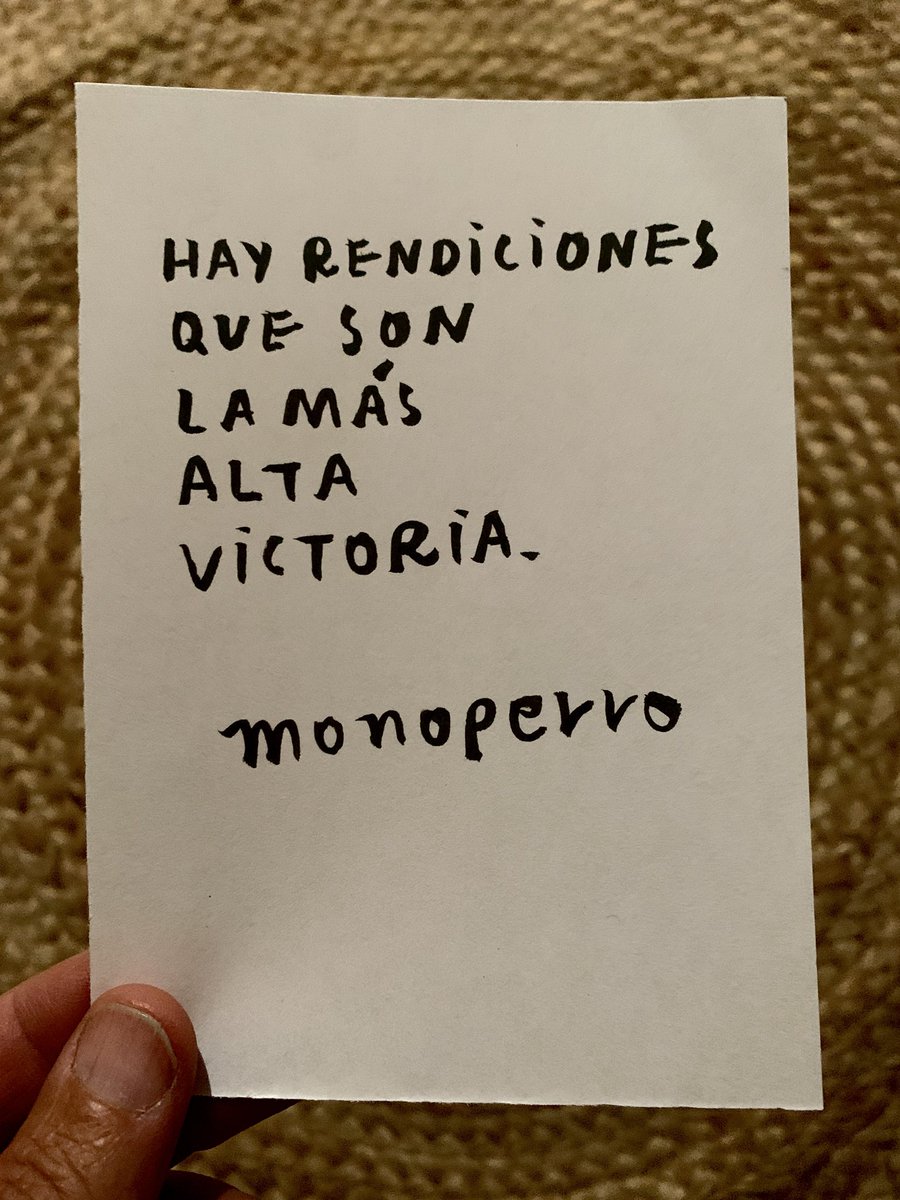 HAY RENDICIONES
QUE SON
LA MÁS
ALTA
VICTORIA.
monoperro